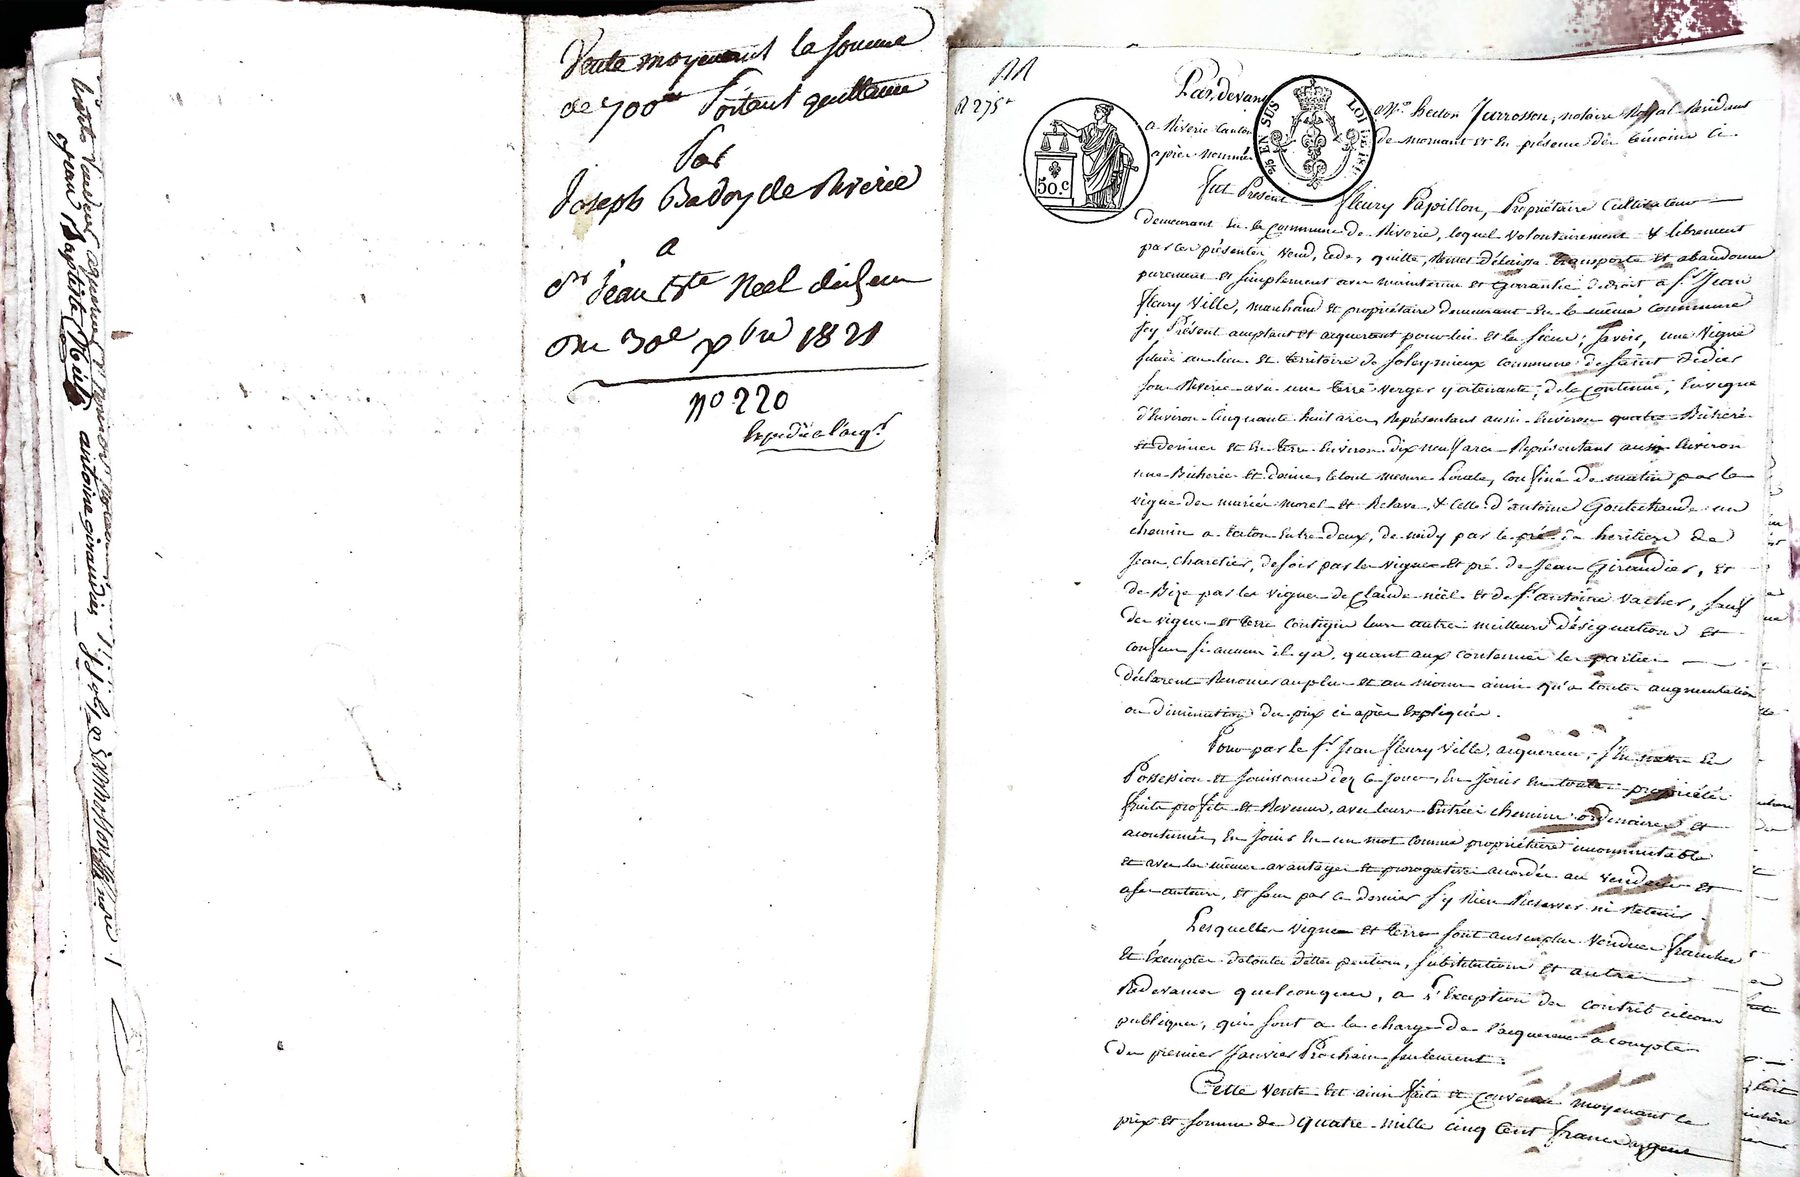 Vente moyenant la somme
de 700 portant quittance
Par
Joseph Badoy de Riverie
a
Sr Jean Bte Neel
du 30e Xbre 1821
no 220
Expédié a l'acqr
Jean Baptiste antoine giraudier
R 275
50.c
EN SUS
LOI DE
Par, devant Me hector Jurrosson, notaire Royal Résidant
a Riverie Canton de mornant et En présence des témoins ci-
après nommés
Fut Présent fleury Papillon, Propriétaire Cultivateur
demeurant En la Commune de Riverie, lequel volontairement & librement
par ces présentes, vend, cede, quitte, Remet délaisse transporte et abandonne
purement et simplement avec maintenue et Garantie de droit a Sr Jean
fleury Ville, marchand et propriétaire demeurant En la même Commune
Icy Présent aceptant et aquerant pour lui et les siens; savoir, une Vigne
située au lieu et territoire de Soleymieux Commune de Saint Didier
sous Riverie avec une terre verger y atenante, de la Contenue, En vigne
d'Environ Cinquante huit ares, Représentans aussi Environ quatre Bicherées
et demies et En terre Environ dix neuf ares Représentant aussi Environ
une Bicherée et demie, le tout mesure Locale, Confiné de matin par la
vigne des mariés morel et Relave, & Celle d'antoine Goutechaude un
chemin a talon Entre deux, de midy par le pré des héritiers de
Jean Charetier, de soir par les vigne et pré de Jean Giraudier, et
de Bize par les vignes de Claude niel et de Sr antoine Vacher, sauf
des vigne et terre Contigus leurs autres meilleures Désignations et
Confins si aucuns il y a, quant aux Contenues les parties
déclarent Renoncer au plus et au moins ainsi qu'a toutes augmentation
ou diminution du prix ci après Expliqué.
Pour par le Sr Jean fleury Ville, acquereur, s'En mettre En
Possession et Jouissance dez ce jour, En Jouir En toute propriété
fruits profits et Revenus, avec leurs Entrées chemins ordinaires et
acoutumés, En Jouir En un mot comme propriétaire incommutable
et avec les mêmes avantages et prérogatives acordés au Vendeur et
a ses auteurs, et sans par ce dernier s'y Rien Réserver ni Retenir.
Lesquelles vigne et terre sont au surplus vendues franches
et Exemptes de toutes dettes pentions, substitutions et autres
Redevances quelconques, a l'Exception des contributions
publiques, qui sont a la charge de l'acquereur a compter
du premier Janvier Prochain seulement.
Cette vente Est ainsi faite et Convenue moyenant le
prix et somme de quatre mille cinq Cent francs argent